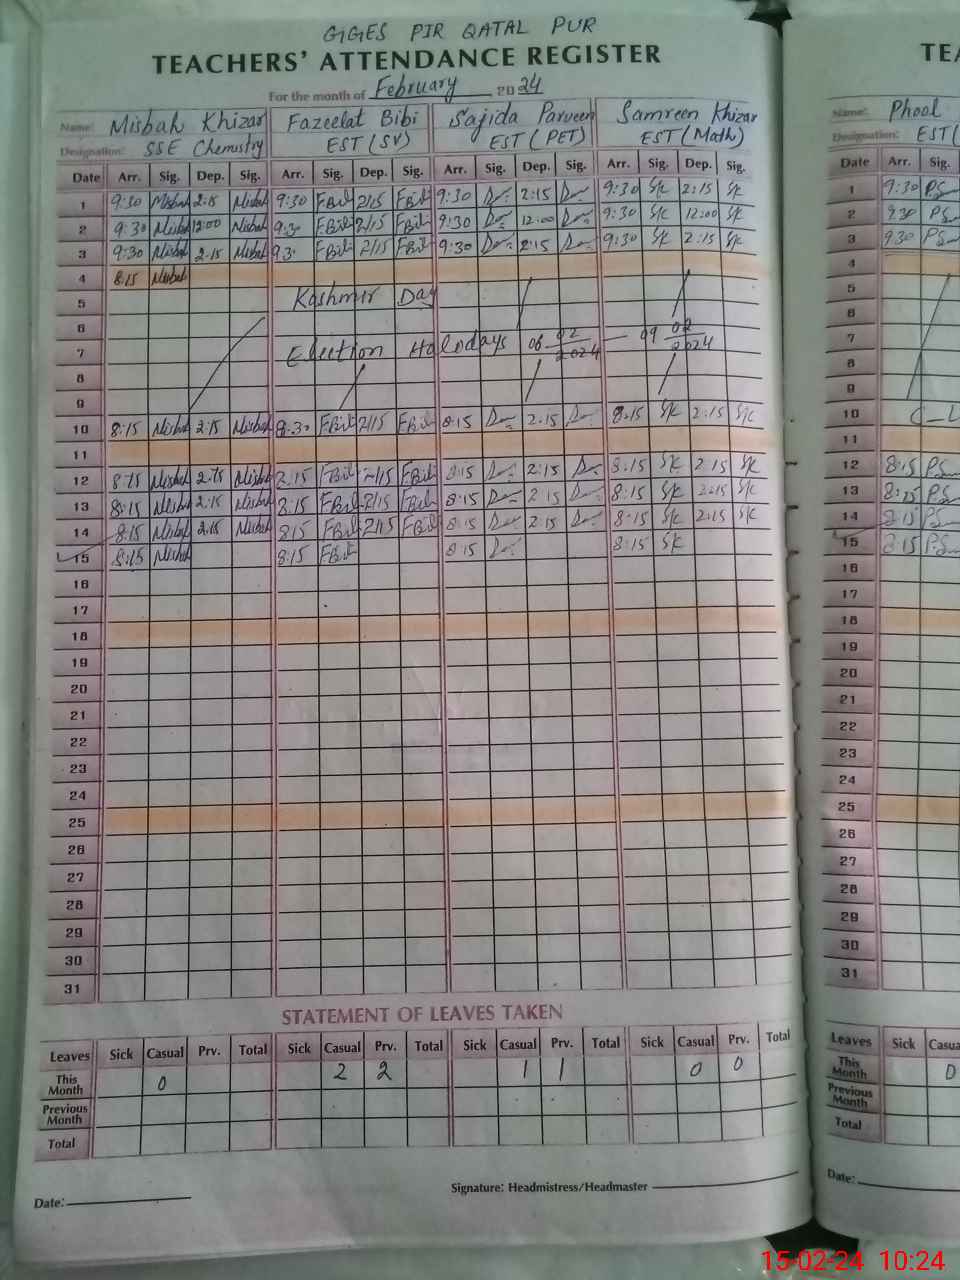 GIGES PIR QATAL PUR
TEACHERS' ATTENDANCE REGISTER
For the month of February 2024
Name: Misbah Khizar Fazeelat Bibi Sajida Parveen Samreen Khizar
Designation: SSE Chemistry EST (SV) EST (PET) EST (Math)
Date Arr. Sig. Dep. Sig. Arr. Sig. Dep. Sig. Arr. Sig. Dep. Sig. Arr. Sig. Dep. Sig.
1 9:30 Misbah 2:15 Misbah 9:30 FBibi 2/15 FBibi 9:30 2:15 9:30 SK 2:15 SK
2 9:30 Misbah 12:00 Misbah 9:30 FBibi 2/15 FBibi 9:30 12:00 9:30 SK 12:00 SK
3 9:30 Misbah 2:15 Misbah 9:30 FBibi 2/15 FBibi 9:30 2:15 9:30 SK 2:15 SK
4 8:15 Misbah
5 Kashmir Day
6
7 Election Holodays 06 02/2024 — 09 02/2024
8
9
10 8:15 Misbah 2:15 Misbah 8:30 FBibi 2/15 FBibi 8:15 2:15 8:15 SK 2:15 SK
11
12 8:15 Misbah 2:15 Misbah 8:15 FBibi 2/15 FBibi 8:15 2:15 8:15 SK 2:15 SK
13 8:15 Misbah 2:15 Misbah 8:15 FBibi 2/15 FBibi 8:15 2:15 8:15 SK 2:15 SK
14 8:15 Misbah 2:15 Misbah 8:15 FBibi 2/15 FBibi 8:15 2:15 8:15 SK 2:15 SK
15 8:15 Misbah 8:15 FBibi 8:15 8:15 SK
16
17
18
19
20
21
22
23
24
25
26
27
28
29
30
31
STATEMENT OF LEAVES TAKEN
Leaves Sick Casual Prv. Total Sick Casual Prv. Total Sick Casual Prv. Total Sick Casual Prv. Total
This Month 0 2 2 1 1 0 0
Previous Month
Total
Date:
Signature: Headmistress/Headmaster
TEA
Name: Phool
Designation: EST(
Date Arr. Sig.
1 9:30 P.S
2 9:30 P.S
3 9:30 P.S
4
5
6
7
8
9
10 C-L
11
12 8:15 P.S
13 8:15 P.S
14 8:15 P.S
15 8:15 P.S
16
17
18
19
20
21
22
23
24
25
26
27
28
29
30
31
Leaves Sick Casua
This Month 0
Previous Month
Total
Date:
15-02-24 10:24